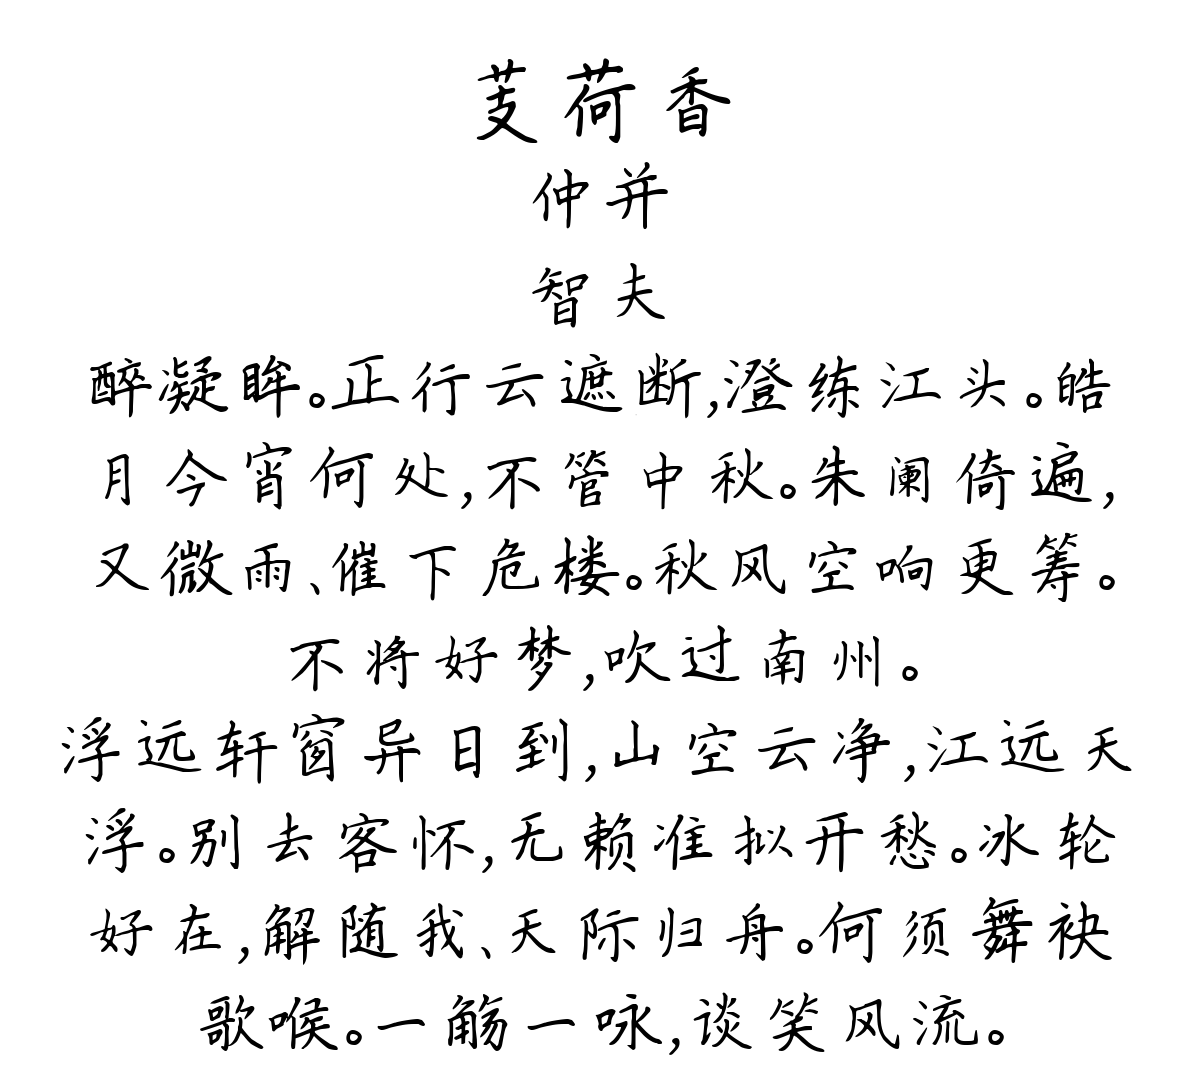 芰荷香
仲并
智夫
醉凝眸。正行云遮断,澄练江头。皓
月今宵何处,不管中秋。朱阑倚遍,
又微雨、催下危楼。秋风空响更筹。
不将好梦,吹过南州。
浮远轩窗异日到,山空云净,江远天
浮。别去客怀,无赖准拟开愁。冰轮
好在,解随我、天际归舟。何须舞袂
歌喉。一觞一咏,谈笑风流。